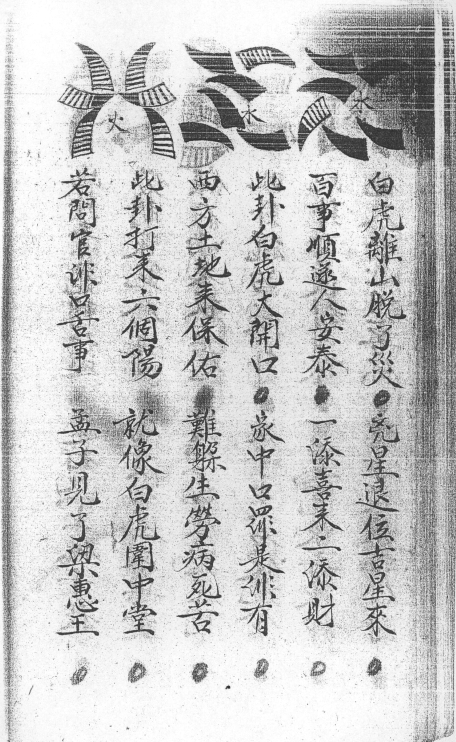 水
白虎離山脱了災 兇星退位吉星來
百事順遂人安泰 一添喜来二添財
木
此卦白虎大開口 家中口罪是非有
西方土地来保佑 難躲生勞病死苦
火
此卦打来六個陽 就像白虎圍中堂
若問官非口舌事 孟子見了梁惠王